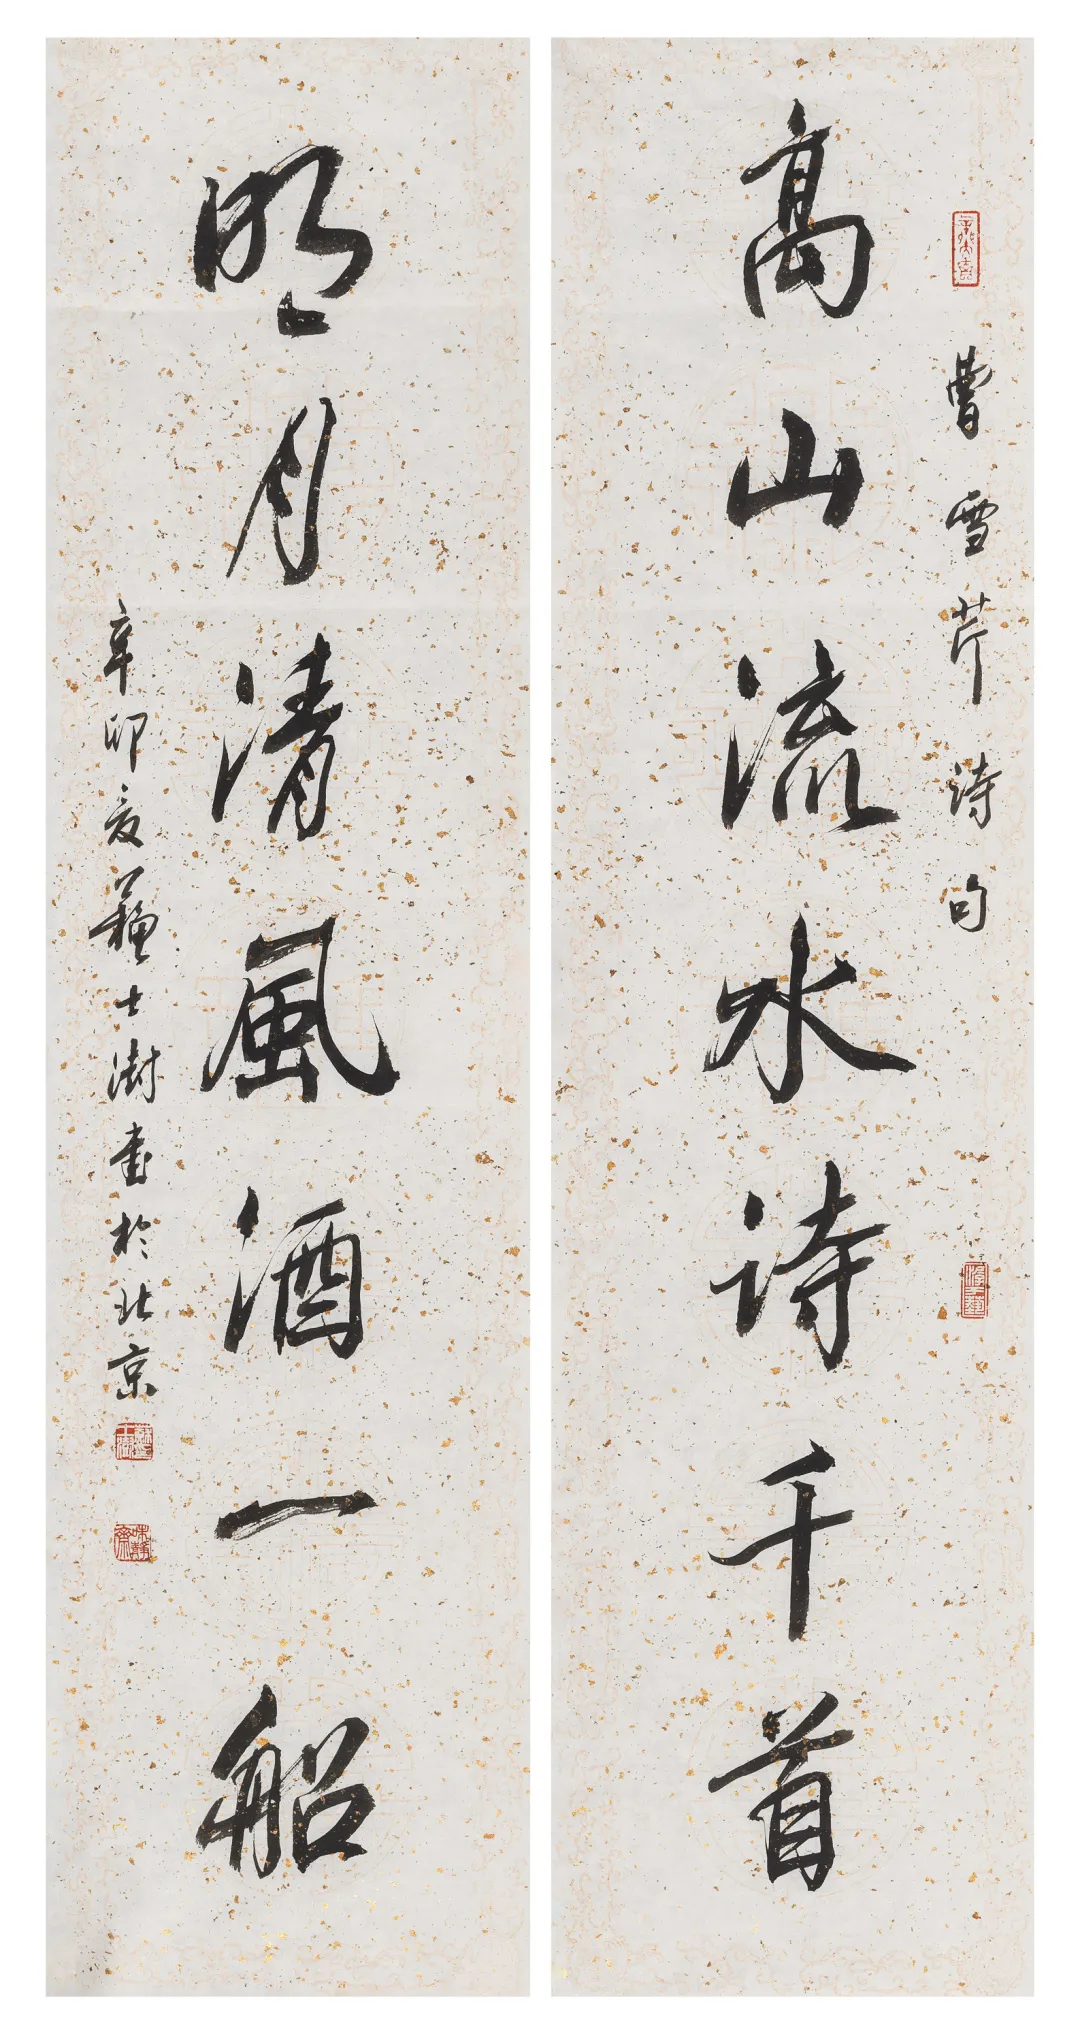 曹雪芹詩句
高山流水詩千首
明月清風酒一船
辛卯夏蘇士澍書於北京